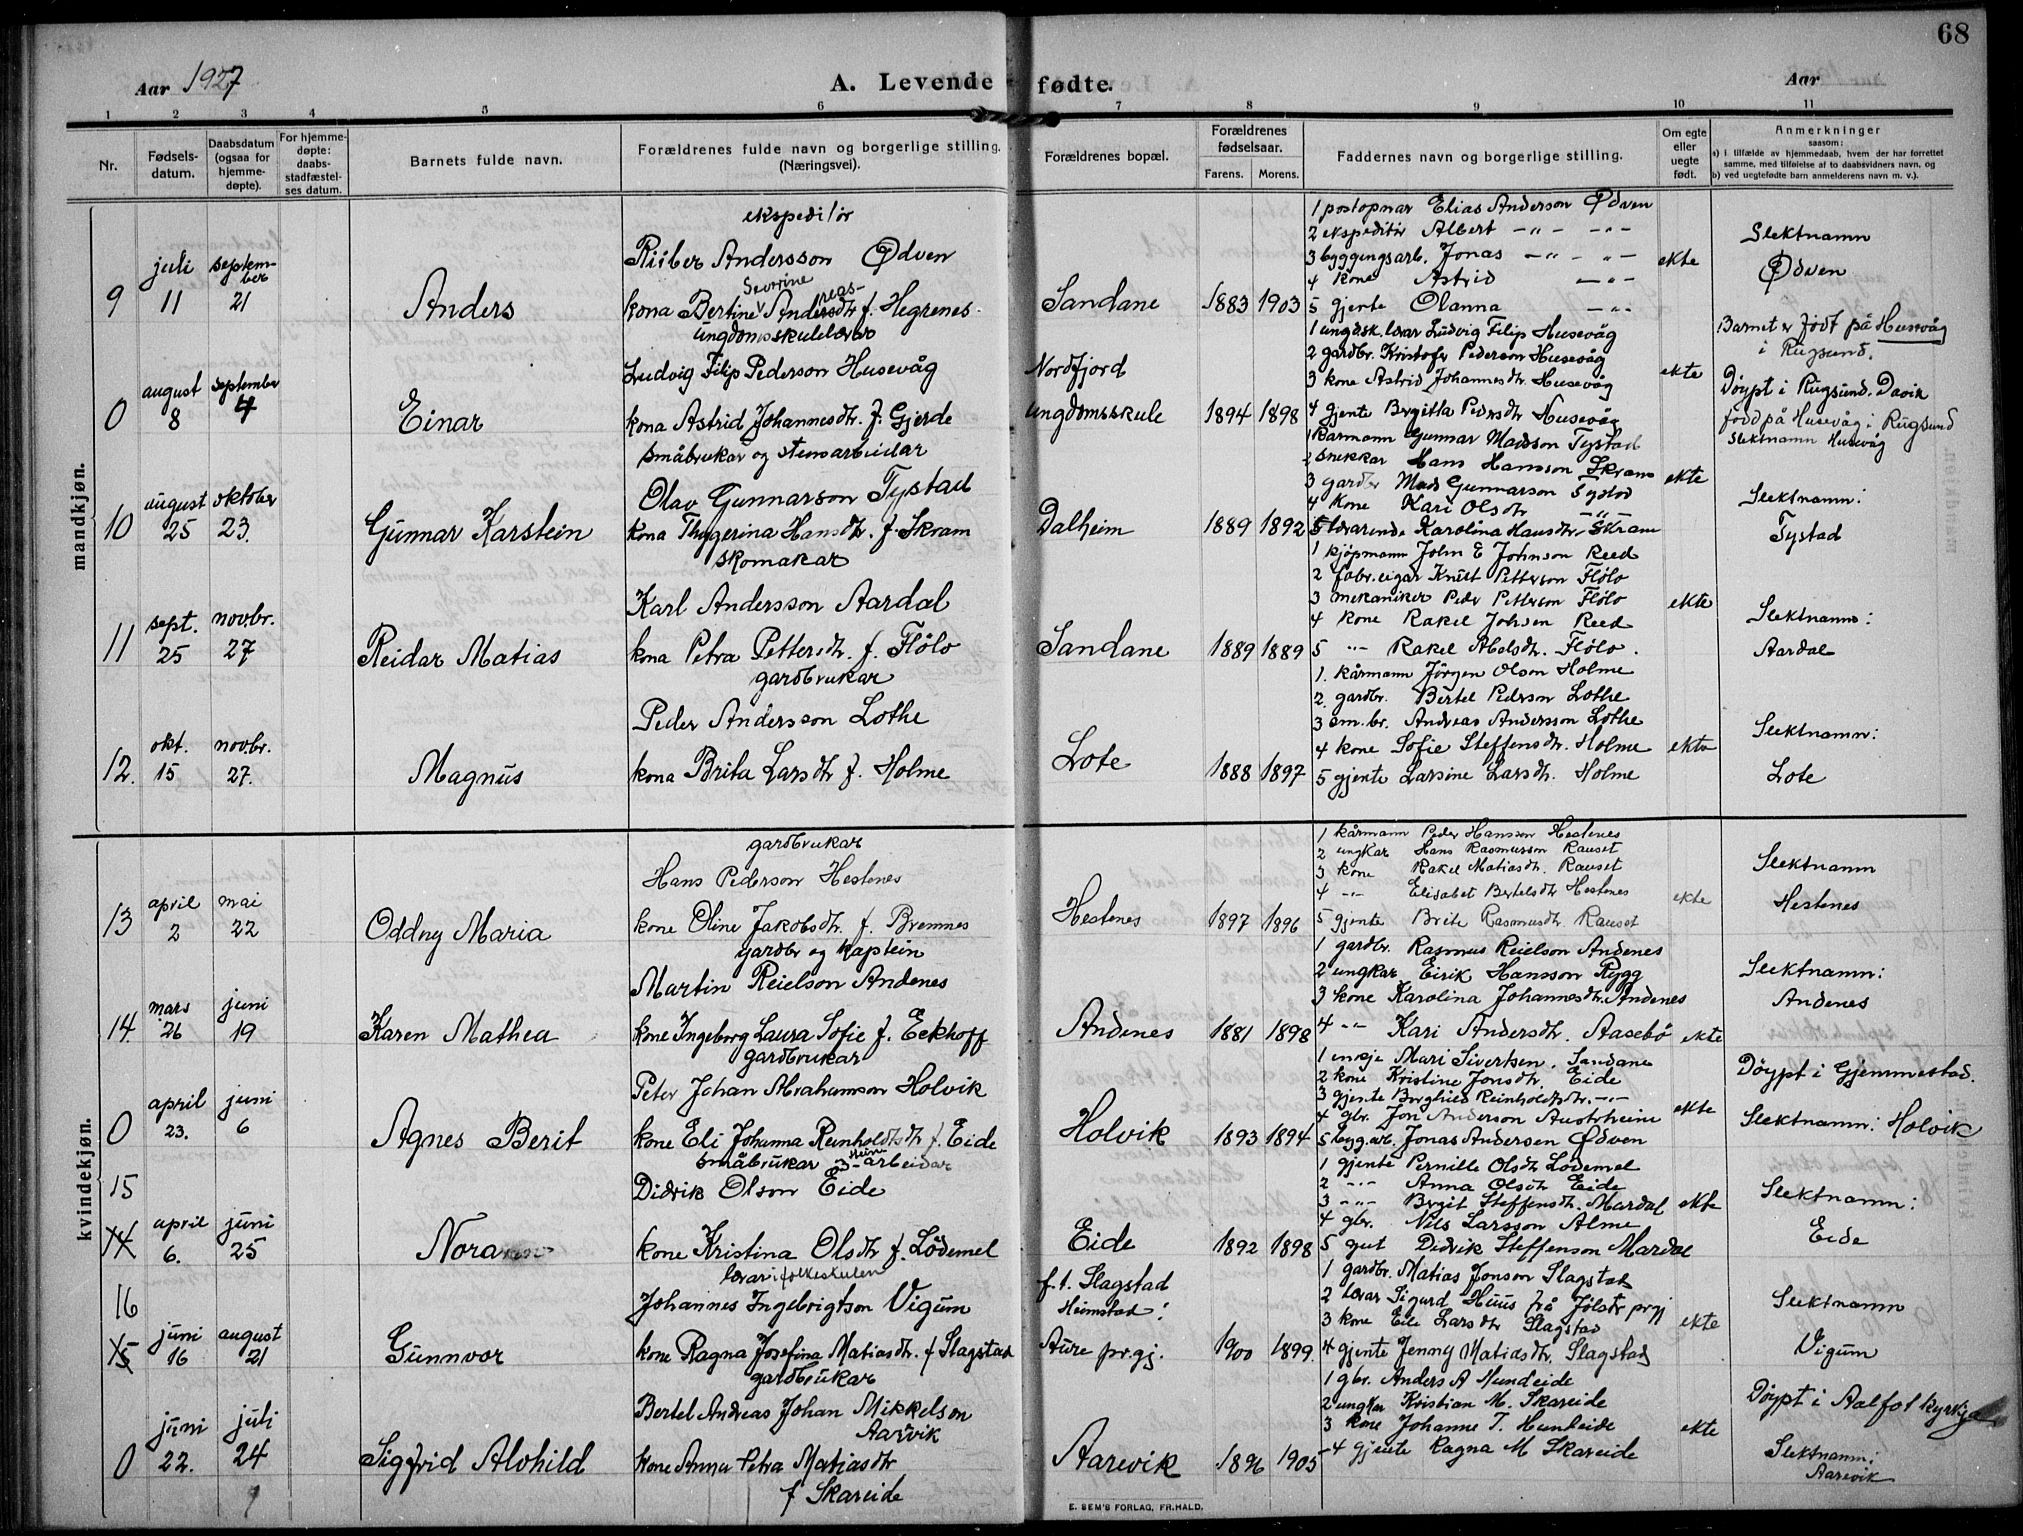 68
Aar 1927
A. Levende fødte.
Aar
1 2 3 4 5 6 7 8 9 10 11
Nr.
Fødsels-
datum.
Daabsdatum
(ogsaa for
hjemme-
døpte).
For hjemme-
døpte:
daabs-
stadfæstel-
ses datum.
Barnets fulde navn.
Forældrenes fulde navn og borgerlige stilling.
(Næringsvei).
Forældrenes bopæl.
Forældrenes
fødselsaar.
Farens. Morens.
Faddernes navn og borgerlige stilling.
Om egte
eller
uegte
født.
Anmerkninger
saasom:
a) i tilfælde av hjemmedaab, hvem der har forrettet
samme, med tilføielse af to daabsvidners navn, og
b) ved uegtefødte barn anmelderens navn m. v.).
mandkjøn.
9
juli
11
septem-
ber
21
Anders
ekspeditör
Riiber Andersson Ødven
Severine
kona Bertine Andreasdtr. f. Hegrenes.
Sandane
1883 1903
1 postopnar Elias Anderson Ødven
2 ekspeditör Albert -"- -"-
3 byggingsarb. Jonas -"- -"-
4 kone Astrid -"-
5 gjente Olanna -"-
ekte
Slektnamn
Ødven
0
august
8
september
4
Einar
ungdomsskulelærar
Ludvig Filip Pederson Husevåg
kona Astrid Johannesdtr. f. Gjerde
Nordfjord
ungdomsskule
1894 1898
1 ungdsk. lærar Ludvig Filip Husevåg
2 gardbr. Kristofer Pederson Husevåg
3 kone Astrid Johannesdtr. Husevåg
4 gjente Bergitta Pedersdtr Husevåg
ekte
Barnet er födt på Husevåg
i Rugsund.
Döypt i Rugsund. Davik
född på Husevåg i Rugsund
Slektnamn Husevåg
10
august
25
oktober
23.
Gunnar Karstein
småbrukar og steinarbeidar
Olav Gunnarson Tystad
kona Thygerina Hansdtr. f. Skram
Dalheim
1889 1892
1 kårmann Gunnar Madsson Tystad
2 snekkar Hans Hansson Skram
3 gardbr Mads Gunnarson Tystad
4 kone Kari Olsdtr -"-
5 lærarinde Karolina Hansdtr. Skram
ekte
Slektnamn:
Tystad
11
sept.
25
novbr.
27
Reidar Matias
skomakar
Karl Andersson Aardal
kona Petra Pettersdtr. f. Flölo
Sandane
1889 1889
1 kjöpmann John E Johnson Reed
2 fabr.eigar Knut Petterson Flölo
3 mekaniker Peder Petterson Flölo
4 kone Rakel Johsen Reed
5 -"- Rakel Abelsdtr. Flölo.
ekte
Slektnamn:
Aardal
12.
okt.
15
novbr.
27.
Magnus
gardbrukar
Peder Andersson Lothe
kona Brita Larsdtr f. Holme
Lote
1888 1897
1. kårmann Jörgen Olson Holme
2. gardbr. Bertel Pederson Lothe
3 sm.br. Andreas Andersson Lothe
4 kone Sofie Steffensdtr. Holme
5 gjente Larsine Larsdtr. Holme
ekte
Slektnamn:
Lote
kvindekjøn.
13
april
2
mai
22
Oddny Maria
gardbrukar
Hans Pederson Hestenes
kone Oline Jakobsdtr. f. Bremnes
Hestenes
1897 1896
1 kårmann Peder Hansson Hestenes
2 ungkar Hans Rasmusson Rauset
3 kone Rakel Matiasdtr. Rauset
4 -"- Elisabet Bertelsdtr Hestenes
5 gjente Brite Rasmusdtr Rauset
ekte
Slektnamn
Hestenes
14.
mars
26
juni
19
Karen Mathea
gardbr og kaptein
Martin Reielson Andenes
kone Ingeborg Laura Sofie f. Eckhoff
Andenes
1881 1898
1 gardbr. Rasmus Reielson Andenes
2 ungkar Eirik Hansson Rygg
3 kone Karolina Johannesdtr. Andenes
4 -"- Kari Andersdtr. Aasebö
ekte
Slektnamn:
Andenes
0
april
23.
juni
6
Agnes Berit
gardbrukar
Peter Johan Abrahamson Holvik
kone Eli Johanna Reinholdtsdtr f. Eide
Holvik
1893 1894
1 enkje Mari Sivertsen, Sandane
2 kone Kristine Jonsdtr. Eide
3 gjente Borghild Reinholdtsdtr. -"-
4 gbr. Jon Anderson Austrheim
5 byg.arb. Jonas Andersen Ødven
ekte
Döypt i Gjemmestad.
Slektnamn: Holvik
15
14
april
6.
juni
25
Nora
småbrukar og steinarbeidar
Didrik Olson Eide
kone Kristina Olsdtr f. Lödemel
Eide
1892 1898
1 gjente Pernille Olsdtr Lödemel
2 -"- Anna Olsdtr Eide
3 -"- Bergit Steffensdtr. Mardal
4 gbr. Nils Larsson Alme
5 gut Didrik Steffenson Mardal
ekte
Slektnamn:
Eide
16
15
juni
16
august
21
Gunnvor
lærar i folkeskulen
Johannes Ingebrigtson Vigum
kone Ragna Josefina Matiasdtr. f Slagstad
f.t. Slagstad
Heimstad:
Aure prgj.
1900 1899.
1 gardbr. Matias Jonson Slagstad
2 lærar Sigurd Huus frå Jölstr prgj
3 kone Eli Larsdtr Slagstad
4 gjente Jenny Matiasdtr. Slagstad
ekte
Slektnamn
Vigum
0
juni
22.
juli
24
Sigfrid Alvhild
gardbrukar
Bertel Andreas Johan Mikkelson
Aarvik
kone Anna Petra Matiasdtr
f Skareide
Aarevik
1896 1905
1 gbr. Anders A Hundeide
2 ungkar Kristian M. Skareide
3 kone Johanne T. Hundeide
4 gjente Ragna M Skareide
ekte
Döypt i Aalfot kyrkja
Slektnamn:
Aarevik
E. SEM'S FORLAG, FR.HALD.